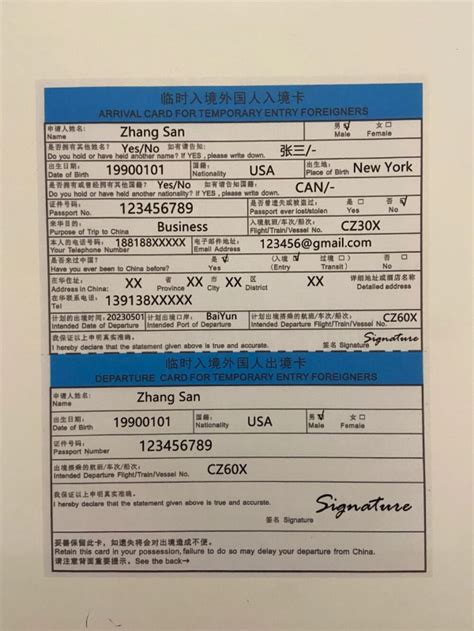 临时入境外国人入境卡
ARRIVAL CARD FOR TEMPORARY ENTRY FOREIGNERS
申请人姓名: Name Zhang San 男 Male ☑ 女 Female □
是否拥有其他姓名? Yes/No 如有请告知: 张三/-
Do you hold or have held another name? If YES , please write down.
出生日期: Date of Birth 19900101 国籍: Nationality USA 出生地: Place of Birth New York
是否拥有或曾经拥有其他国籍? Yes/No 如有请告知国籍: CAN/-
Do you hold or have held another nationality? If YES , please write down.
证件号码: Passport No. 123456789 是否曾遗失或被盗过: Passport ever lost/stolen 是 Yes 否 No
来华目的: Purpose of Trip to China Business 入境航班/车次/船次: Flight/Train/Vessel No. CZ30X
本人的电话号码: Your Telephone Number 188188XXXXX 电子邮件地址: Email Address 123456@gmail.com
是否来过中国? 是 否 (入境 过境 □ )
Have you ever been to China before? Yes No (Entry Transit )
在华住址: XX 省 XX 市 XX 区 XX 详细地址或酒店名称
Address in China: Province City District Detailed address
在华联系电话: Tel 139138XXXXX
计划的出境时间: Intended Date of Departure 20230501 计划出境口岸: Intended Port of Departure BaiYun 计划出境搭乘的航班/车次/船次: Intended Departure Flight/Train/Vessel No. CZ60X
我保证以上申明真实准确。
I hereby declare that the statement given above is true and accurate. 签名 Signature Signature
临时入境外国人出境卡
DEPARTURE CARD FOR TEMPORARY ENTRY FOREIGNERS
申请人姓名: Name Zhang San
出生日期: Date of Birth 19900101 国籍: Nationality USA 男 Male ☑ 女 Female □
证件号码: Passport Number 123456789
出境搭乘的航班/车次/船次: CZ60X
Intended Departure Flight/Train/Vessel No.
我保证以上申明真实准确。
I hereby declare that the statement given above is true and accurate. Signature
签名 Signature
妥善保留此卡, 如遗失将会对出境造成不便。
Retain this card in your possession, failure to do so may delay your departure from China.
请注意背面重要提示。 See the back→